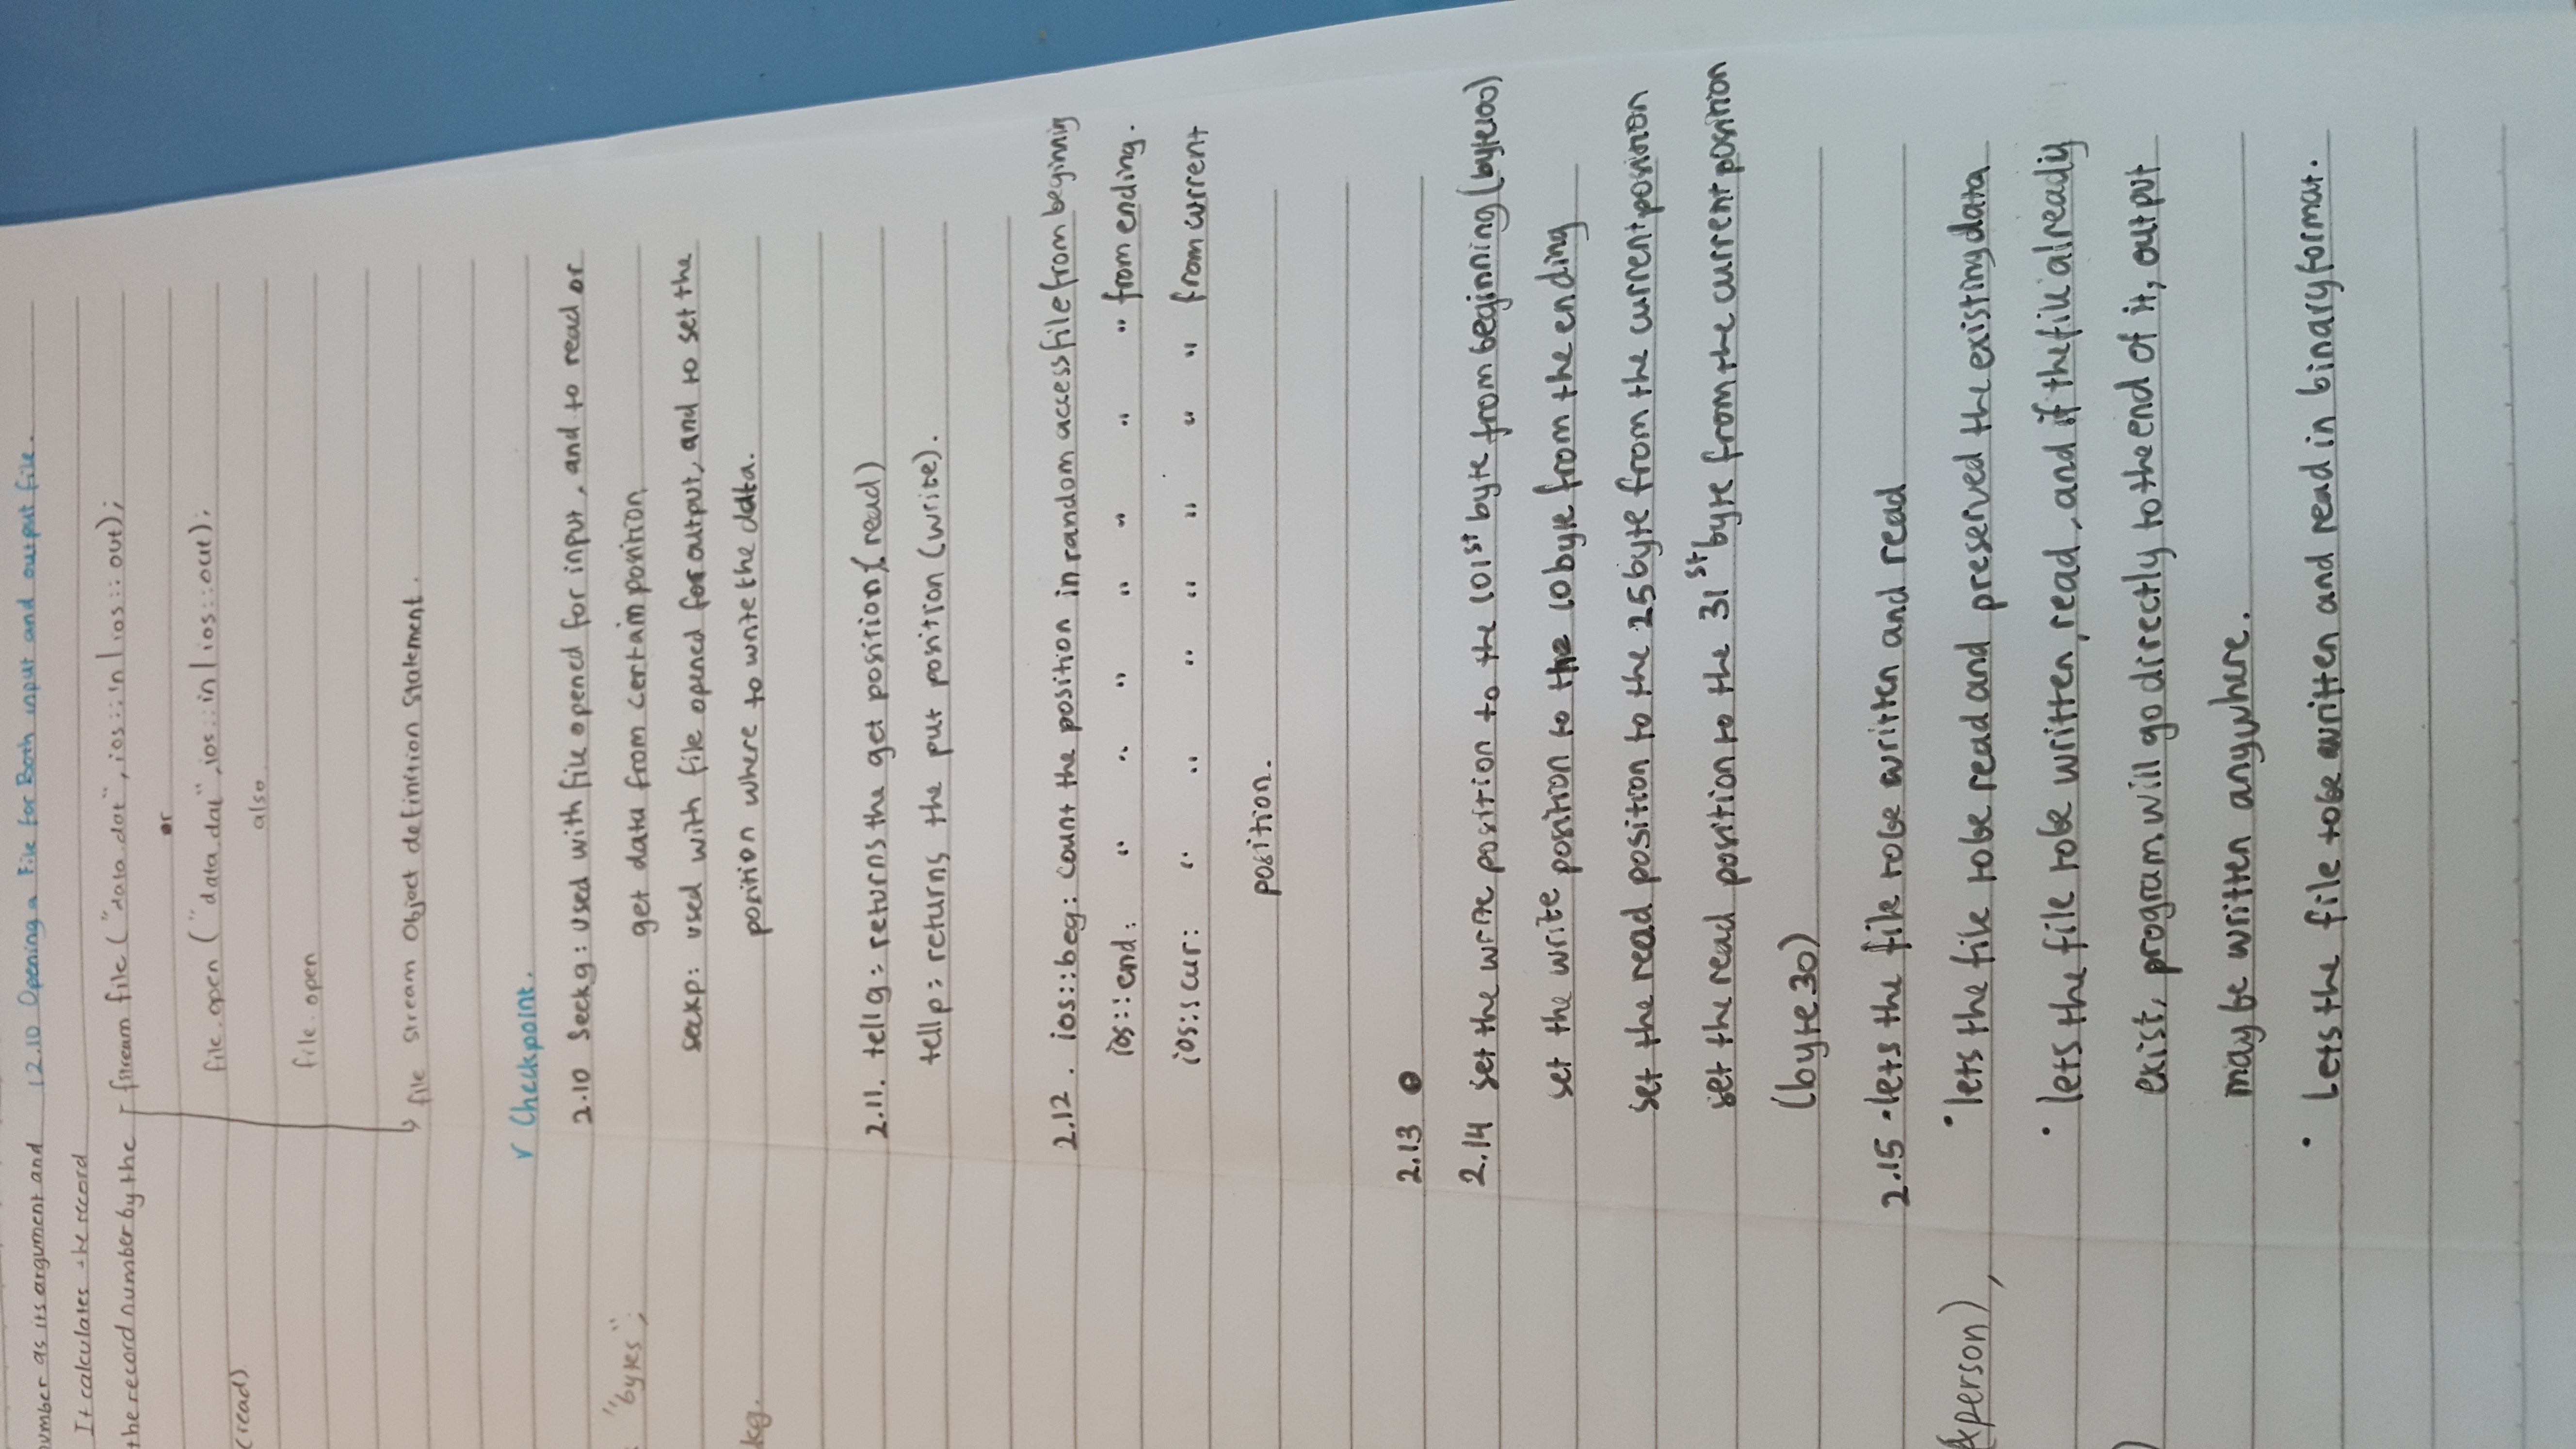 number as its argument and
It calculates the record
the record number by the
(read)
"bytes";
kg.
&person),
)
12.10 Opening a File for Both input and output file.
fstream file ("data.dat", ios::in | ios::out);
or
file.open ("data.dat", ios::in | ios::out);
also
file.open
file stream Object definition Statement.
✓ Checkpoint.
2.10 Seekg: used with file opened for input, and to read or
get data from certain position
seekp: used with file opened for output, and to set the
position where to write the data.
2.11. tellg: returns the get position (read)
tellp: returns the put position (write).
2.12. ios::beg: count the position in random access file from beginning
ios::end: " " " " " " " from ending.
ios::cur: " " " " " " " from current
position.
2.13 0
2.14 set the write position to the 101st byte from beginning (byte100)
set the write position to the 10 byte from the ending
set the read position to the 25 byte from the current position
set the read position to the 31st byte from the current position
(byte 30)
2.15 • lets the file to be written and read
• lets the file to be read and preserved the existing data
• lets the file to be written, read, and if the file already
exist, program will go directly to the end of it, output
may be written anywhere.
• Lets the file to be written and read in binary format.